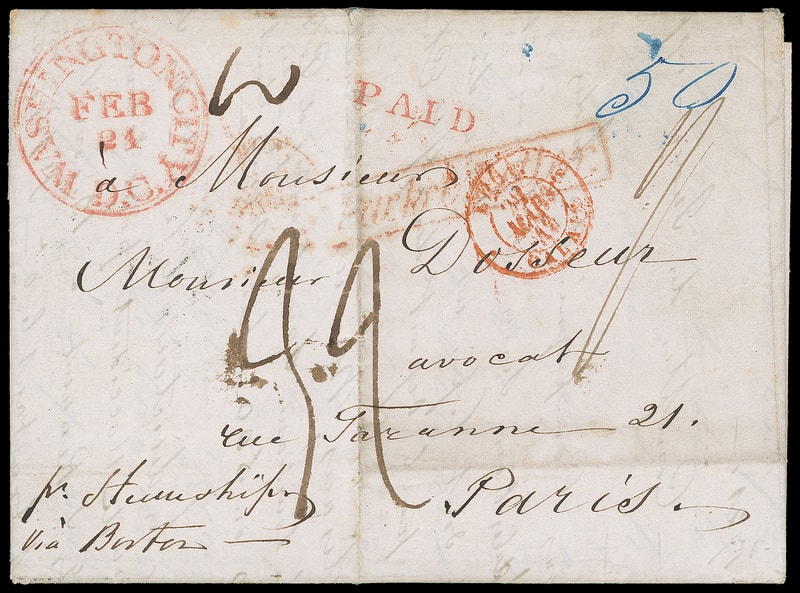 WASHINGTON CITY
D.C.
FEB
21
PAID
50
à Monsieur
Monsieur Dosseur
avocat
rue Taranne 21.
Paris.
pr. Steamship
via Boston